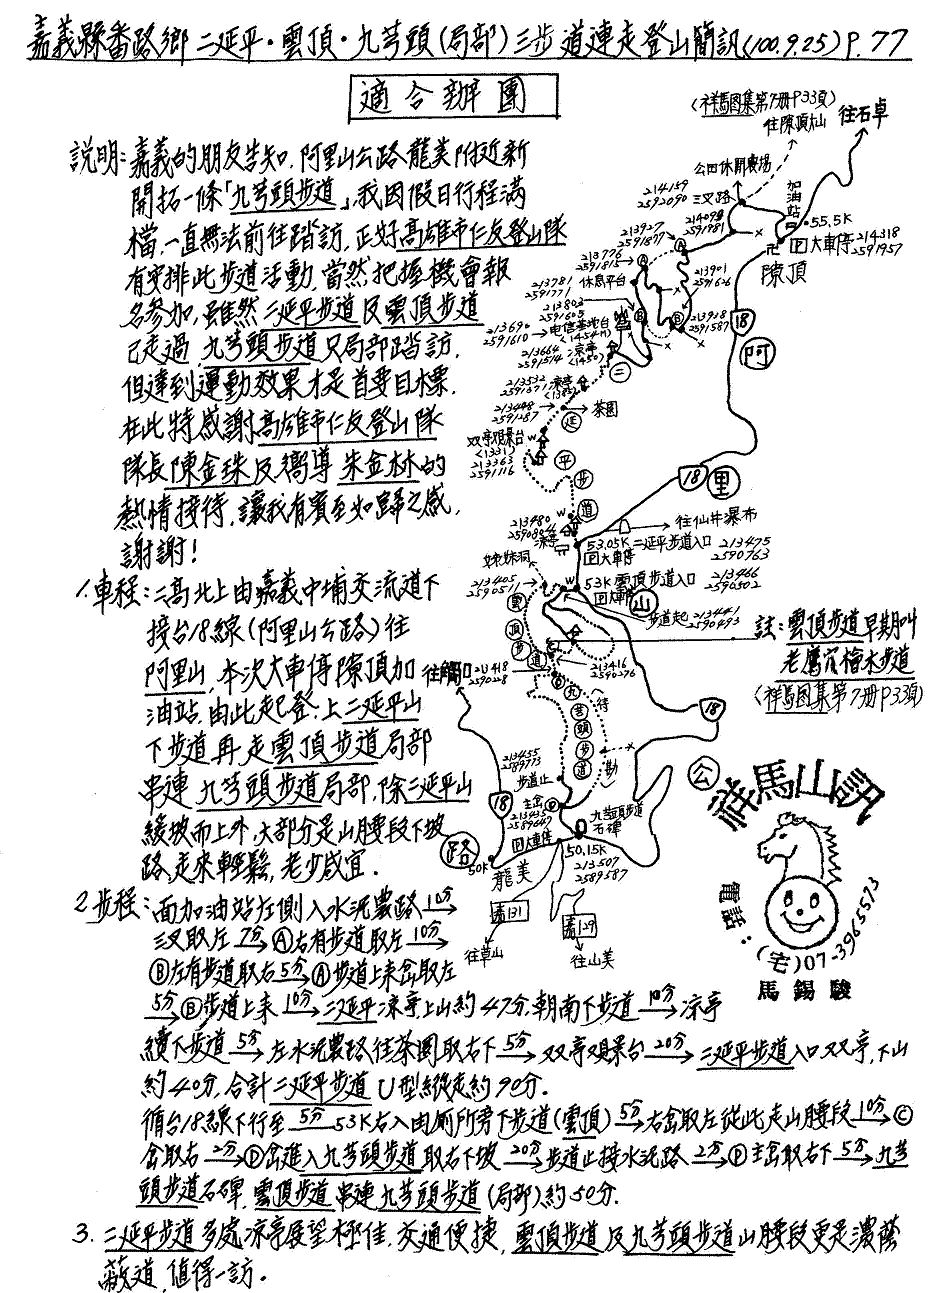 嘉義縣番路鄉二延平·雲頂·九芎頭(局部)三步道連走登山簡訊(100.9.25)P.77
適合辦團
說明:嘉義的朋友告知,阿里山公路龍美附近新
開拓一條「九芎頭步道」,我因假日行程滿
檔,一直無法前往踏訪,正好高雄市仁友登山隊
有安排此步道活動,當然把握機會報
名參加,雖然二延平步道及雲頂步道
已走過,九芎頭步道只局部踏訪,
但達到運動效果才是首要目標,
在此特感謝高雄市仁友登山隊
隊長陳金珠及嚮導朱金林的
熱情接待,讓我有賓至如歸之感,
謝謝!
1.車程:二高北上由嘉義中埔交流道下
接台18線(阿里山公路)往
阿里山,本次大車停隙頂加
油站,由此起登,上二延平山
下步道再走雲頂步道局部
串連九芎頭步道局部,除二延平山
緩坡而上外,大部分是山腰段下坡
路,走來輕鬆,老少咸宜.
2.步程:面加油站左側入水泥農路10分→
三叉取左7分→Ⓐ右有步道取左10分→
Ⓑ左有步道取右5分→Ⓐ步道上來岔取左
5分→Ⓑ步道上來10分→二延平涼亭上山約47分,朝南下步道10分→涼亭
續下步道5分→左水泥農路往茶園取右下5分→双亭观景台20分→二延平步道入口双亭,下山
約40分,合計二延平步道U型縱走約90分.
循台18線下行至5分→53K右入由廁所旁下步道(雲頂)5分→右岔取左從此走山腰段10分→Ⓒ
岔取右2分→Ⓓ岔進入九芎頭步道取右下坡20分→步道止接水泥路2分→Ⓟ主岔取右下5分→九芎
頭步道石碑,雲頂步道串連九芎頭步道(局部)約50分.
3.二延平步道多處涼亭展望極佳,交通便捷,雲頂步道及九芎頭步道山腰段更是濃蔭
蔽道,值得一訪.
(祥馬圖集第7冊P33頁)
往隙頂山
往石卓
公田休閒農場
加油站
214159
2592090
三叉路
55.5K
大車停
214318
2591957
隙頂
213927
2591877
214098
2591981
213776
2591815
213781
2591771
休息平台
213901
2591626
213803
2591605
213690
2591610
電信基地台
(1454M)
213918
2591587
213664
2591514
涼亭
(1450)
213532
2591371
涼亭
213448
2591287
茶園
双亭观景台
(1331)
213363
2591116
二延平步道
18
阿里山公路
往仙井瀑布
213480
涼亭
53.05K二延平步道入口
大車停
213475
2590763
姊妹洞
213405
2590511
53K雲頂步道入口
大車停
213466
2590502
步道起
213441
2590493
雲頂步道
往觸口
213418
2590228
213416
2590276
九芎頭步道
(待勘)
註:雲頂步道早期叫
老鷹穴檜木步道
(祥馬圖集第7冊P33頁)
213455
2589773
步道止
主岔
213435
2589647
大車停
九芎頭步道
石碑
50K
龍美
50.15K
213507
2589587
嘉131
往草山
嘉129
往山美
祥馬山訊
電話:(宅)07-3965573
馬錫駿